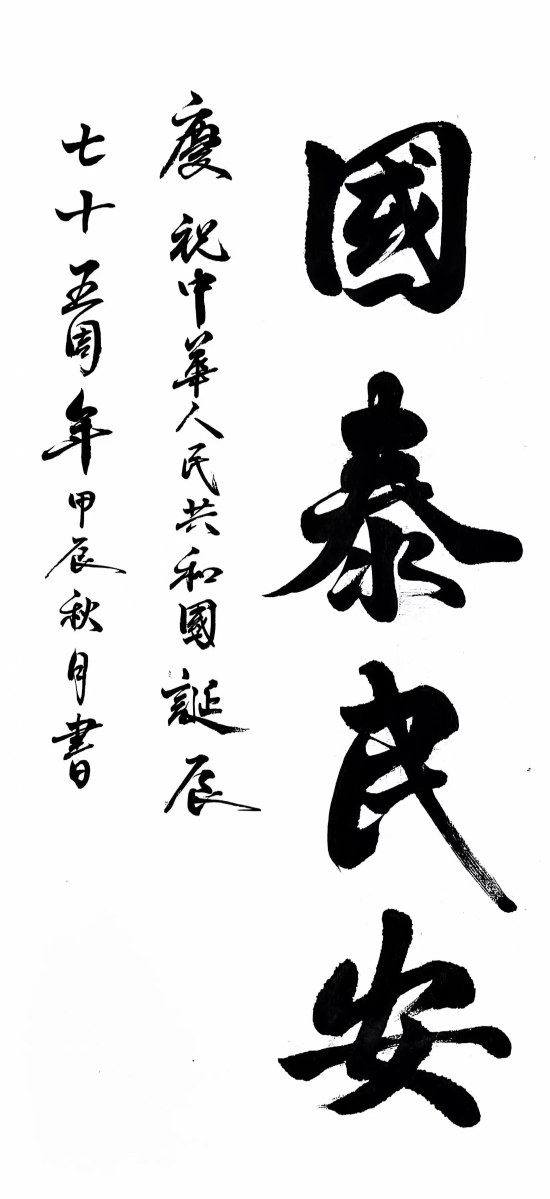 國泰民安
慶祝中華人民共和國誕辰
七十五周年甲辰秋月書